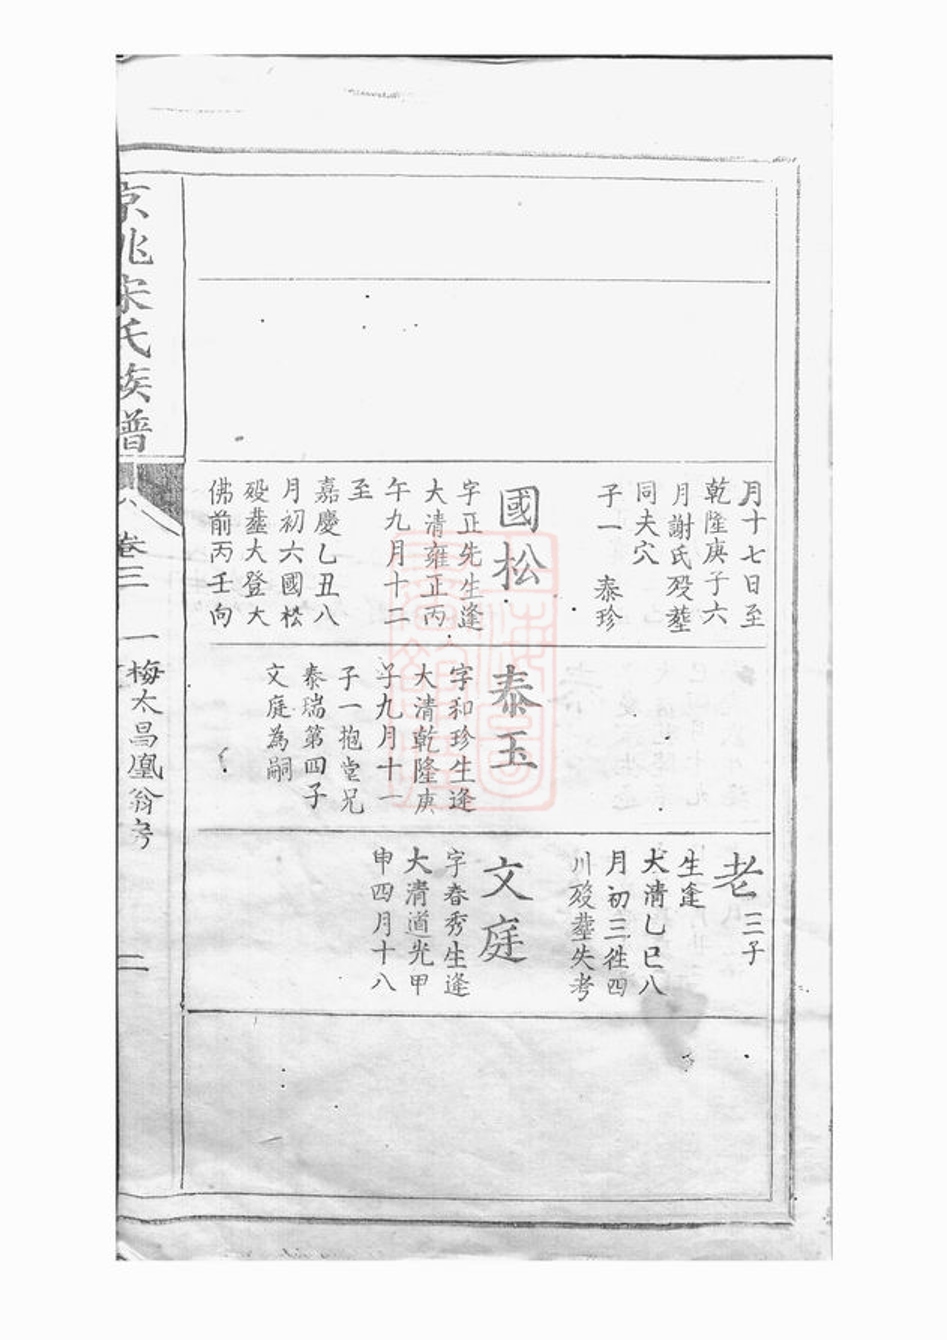 月十七日至
乾隆庚子六
月謝氏歿塟
同夫穴
子一　泰珍
國松
字正先生逢
大清雍正丙
午九月十二
至
嘉慶乙丑八
月初六國松
歿塟大登大
佛前丙壬向
泰玉
字和珍生逢
大清乾隆庚
子九月十一
子一抱堂兄
泰瑞第四子
文庭為嗣
老三子
生逢
大清乙巳八
月初三往四
川歿塟失考
文庭
字春秀生逢
大清道光甲
申四月十八
京兆宋氏族譜
卷三
一梅太昌凰翁房
二